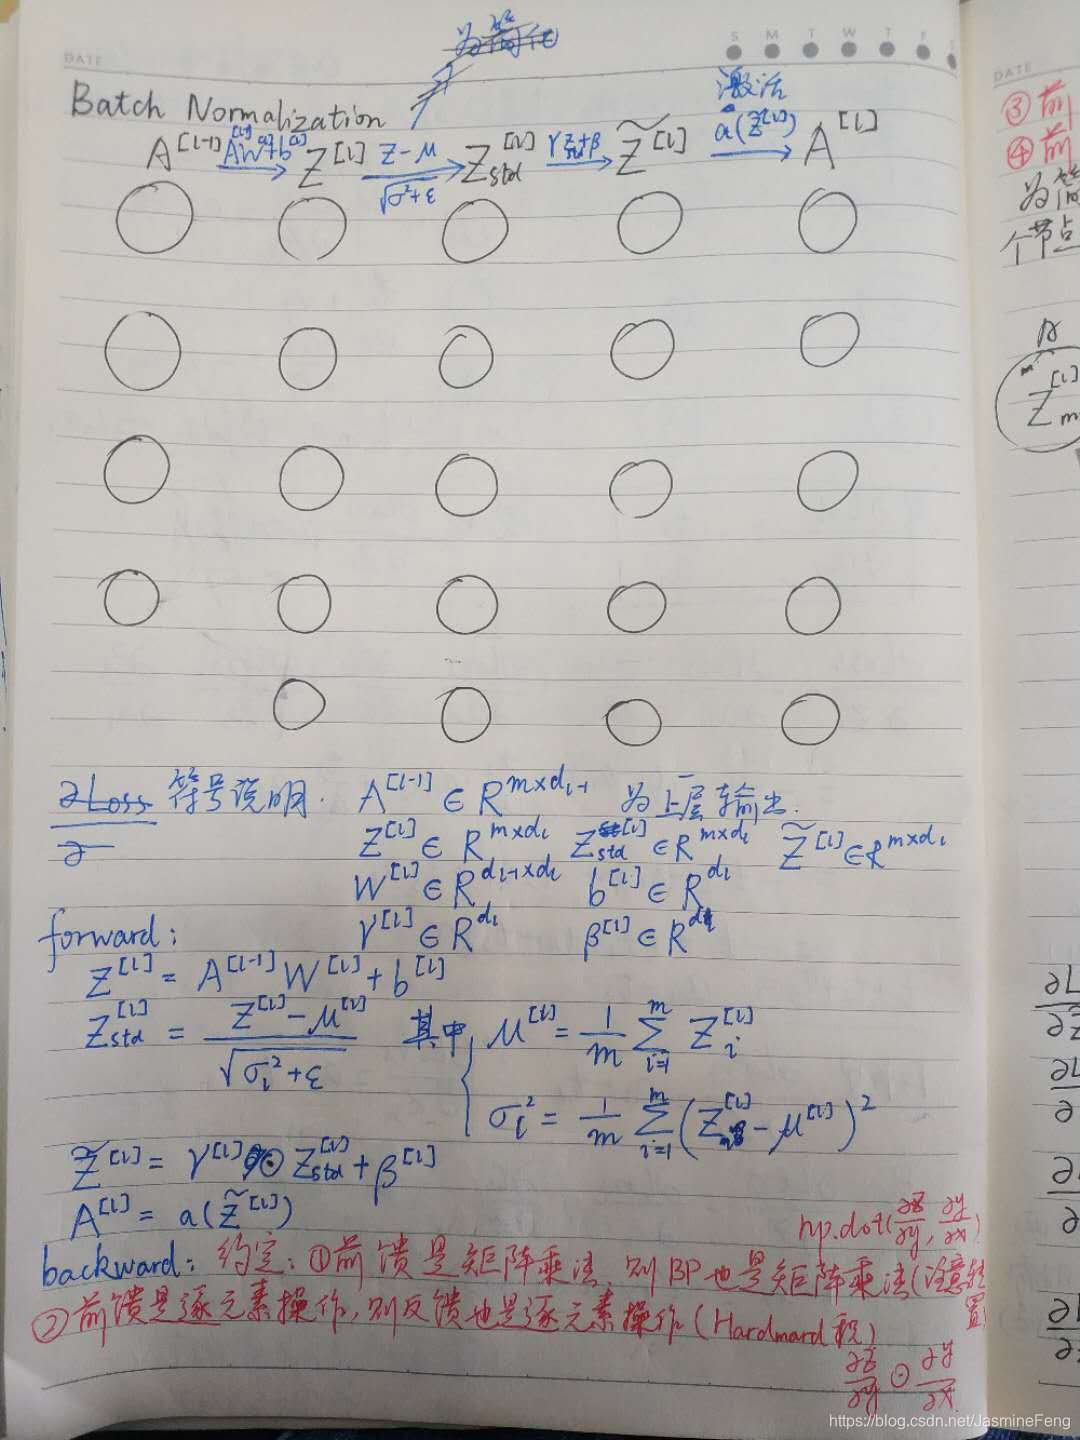 DATE
S M T W T F
Batch Normalization
激活
A^[l-1] → Z^[l] → Z_std^[l] → Z̃^[l] → A^[l]
A^[l-1]W^[l]+b^[l]  Z-μ / √(σ²+ε)  γZ+β  a(Z̃^[l])
符号说明. A^[l-1] ∈ R^(m×d_(l-1)) 为上一层输出.
Z^[l] ∈ R^(m×d_l) Z_std^[l] ∈ R^(m×d_l) Z̃^[l] ∈ R^(m×d_l)
W^[l] ∈ R^(d_(l-1)×d_l) b^[l] ∈ R^(d_l)
γ^[l] ∈ R^(d_l) β^[l] ∈ R^(d_l)
forward:
Z^[l] = A^[l-1] W^[l] + b^[l]
Z_std^[l] = (Z^[l] - μ^[l]) / √(σ_l² + ε) 其中 { μ^[l] = 1/m Σ_(i=1)^m Z_i^[l]
σ_l² = 1/m Σ_(i=1)^m (Z^[l] - μ^[l])²
Z̃^[l] = γ^[l] ⊙ Z_std^[l] + β^[l]
A^[l] = a(Z̃^[l])
np.dot(∂z/∂y, ∂y/∂x)
backward: 约定: ①前馈是矩阵乘法, 则BP也是矩阵乘法(注意转置)
②前馈是逐元素操作, 则反馈也是逐元素操作(Hardmard积)
∂z/∂y ⊙ ∂y/∂x
DATE
③前
④前
为简
个节点
Z^[l]
https://blog.csdn.net/JasmineFeng